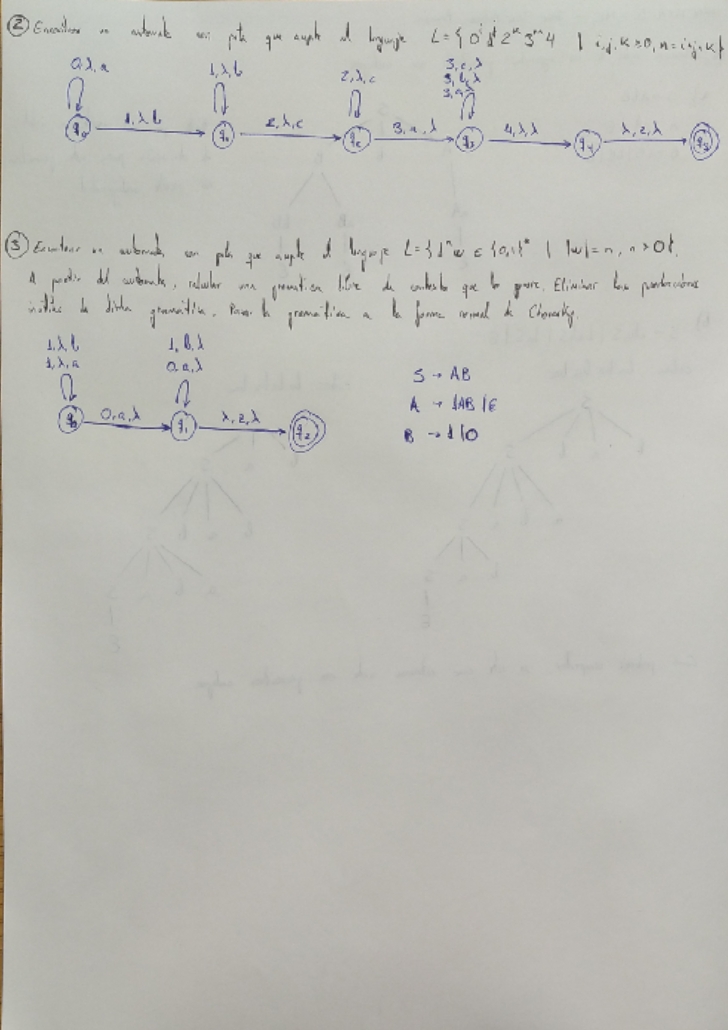 ② Encontrar un automata con pila que acepte el lenguaje L = { 0^i 1^j 2^k 3^m 4 | i, j, k > 0, m = i + j + k }
0, λ, a
1, λ, b
2, λ, c
3, c, λ
3, b, λ
3, a, λ
q0 1, λ, b q1 2, λ, c q2 3, a, λ q3 4, λ, λ q4 λ, z, λ q5
③ Encontrar un automata con pila que acepte el lenguaje L = { 1^n w ∈ {0,1}* | |w| = n, n > 0 }.
A partir del automata, calcular una gramatica libre de contexto que lo genere. Eliminar las producciones
inútiles de dicha gramática. Pasar la gramática a la forma normal de Chomsky.
1, λ, b
1, λ, a
1, b, λ
0, a, λ
q0 0, a, λ q1 λ, z, λ q2
S → AB
A → 1AB | ε
B → 1 | 0